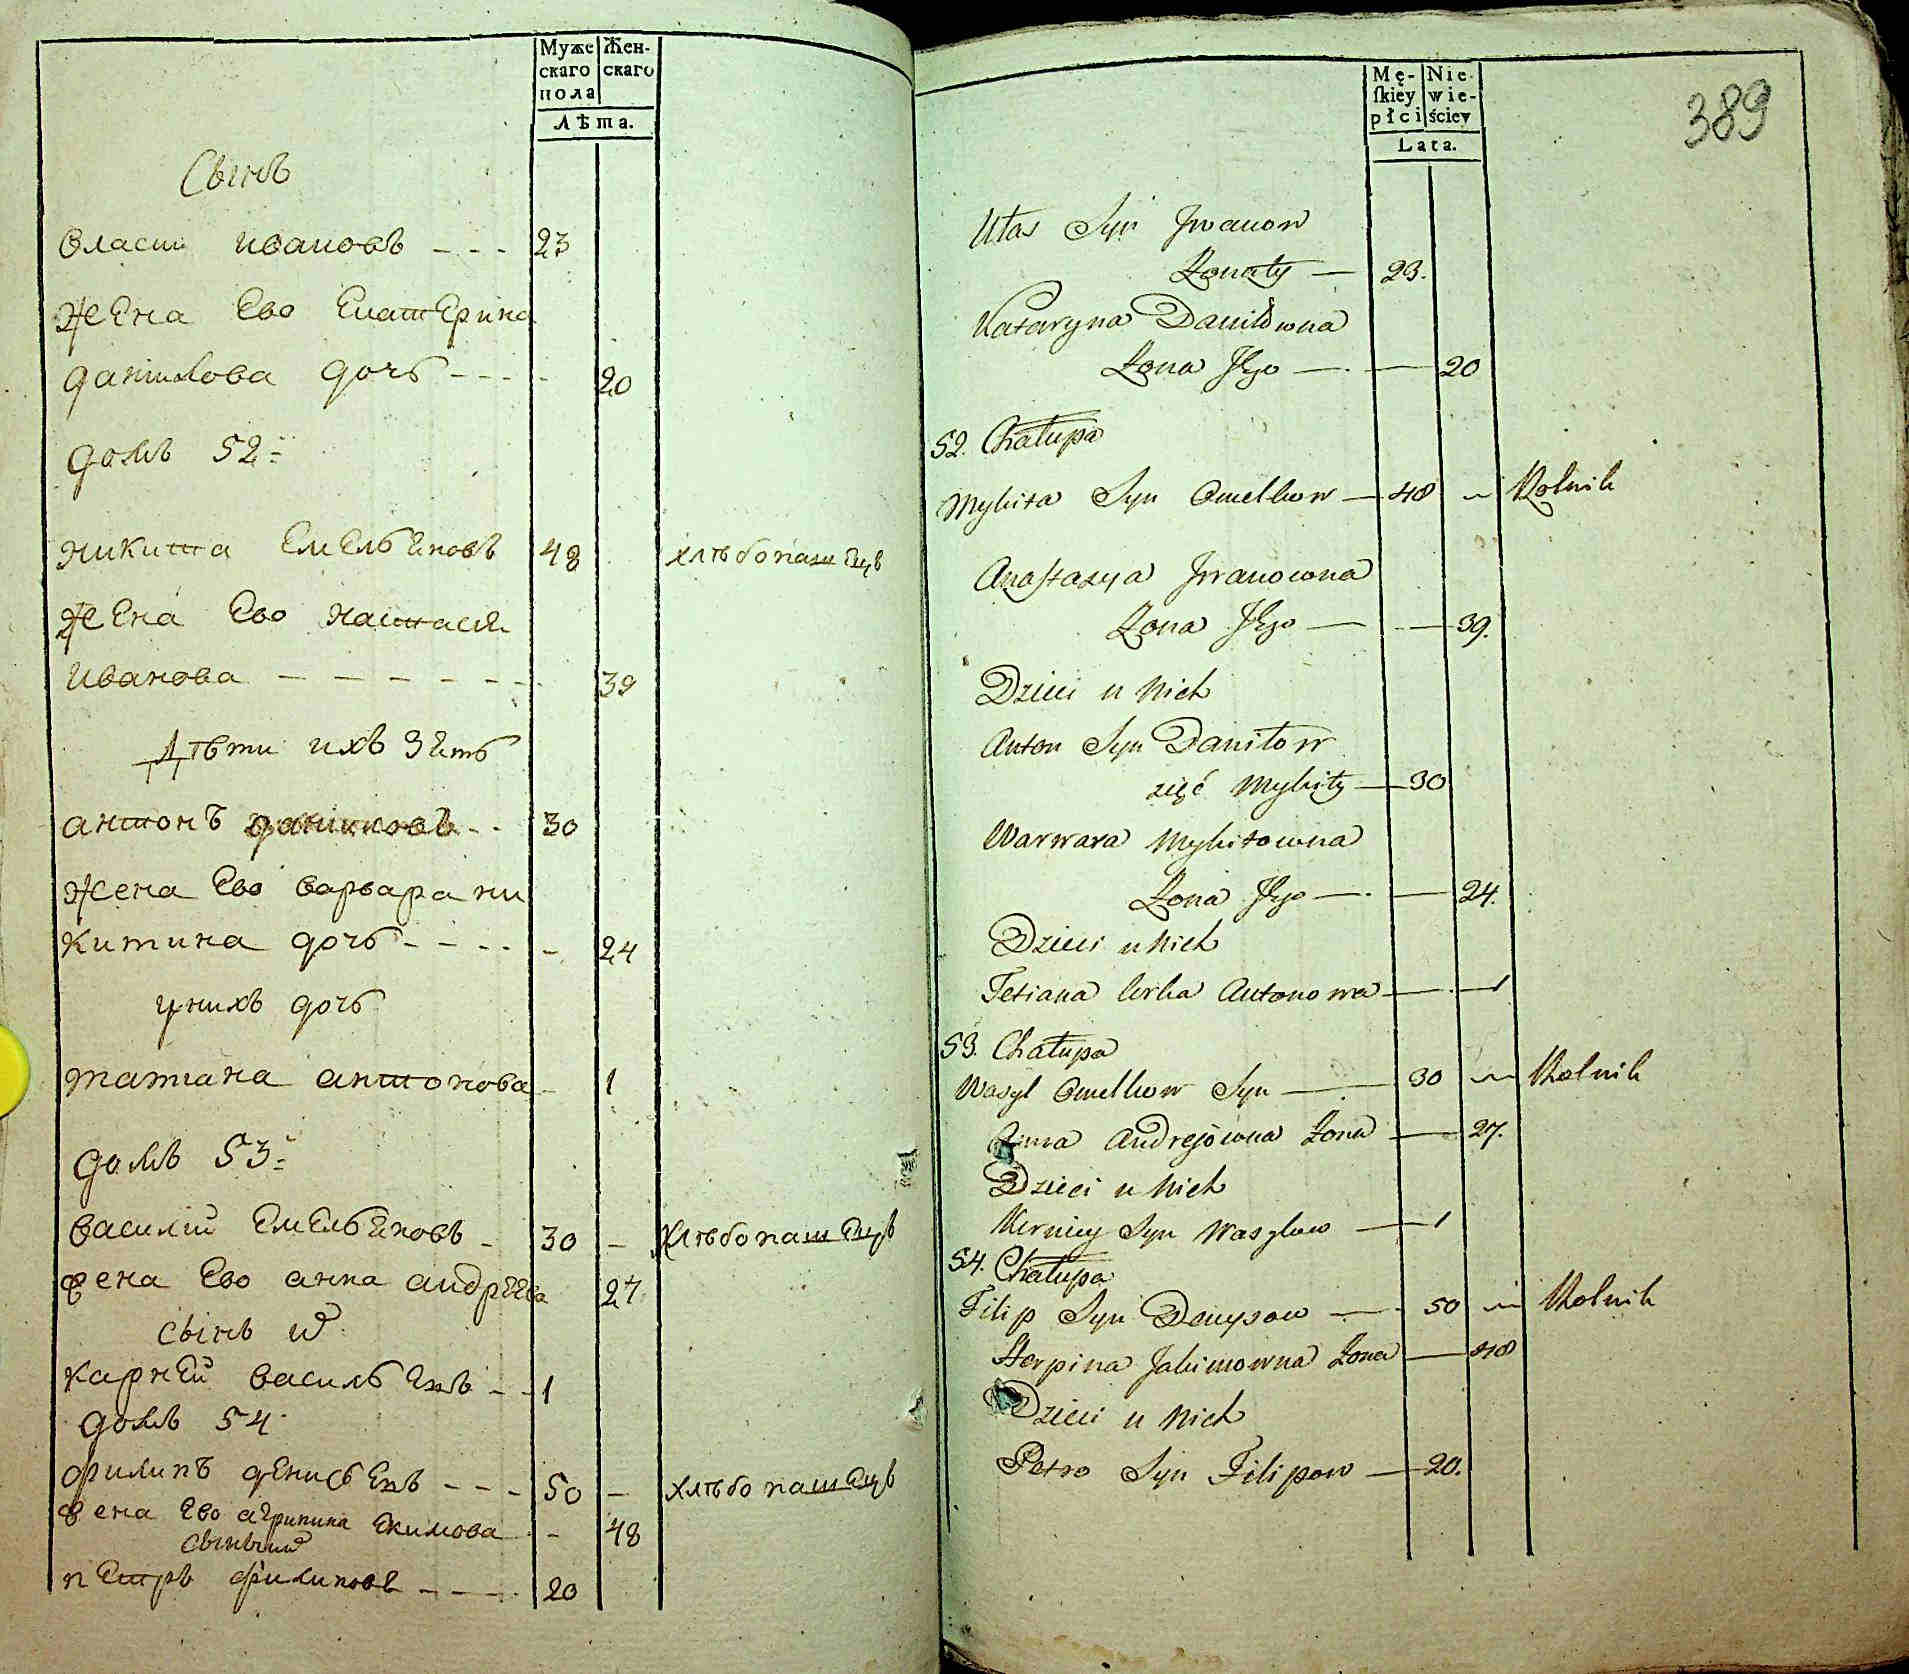 Муже Жен-
скаго скаго
пола
Лѣта.
Сынъ
Власъ ивановъ - - - 23
жена Ево Екатерина
данилова дочь - - - - 20
домъ 52
никита Емельяновъ 48 хлѣбопашецъ
жена Ево настася
иванова - - - - - - 39
Дѣти ихъ зять
антонъ даниловъ - - 30
жена Ево варвара ни
китина дочь - - - - - 24
у нихъ дочь
татиана антонова - 1
домъ 53
василий Емельяновъ - 30 - Хлѣбопашецъ
жена Ево анна андрѣева 27
сынъ
карней васильевъ - - 1
домъ 54
филипъ денисьевъ - - - 50 - хлѣбопашецъ
жена Ево агрипина Екимова - 48
сынъ
пётръ филиповъ - - - - 20
Mę- Nie-
skiey wie-
płci ściey
Lata.
389
Ułas Syn Jwanow
Żonaty — 23.
Kataryna Daniłowna
Żona Jego — . — 20
52. Chałupa
Mykita Syn Omelkow — 48 ~ Rolnik
Anastazya Jwanowna
Żona Jego — — 39.
Dzieci u Nich
Anton Syn Daniłow
zięć Mykity — 30
Warwara Mykitowna
Żona Jego — . — 24.
Dzieci u Nich
Tetiana Corka Antonowa — — 1
53. Chałupa
Wasyl Omelkow Syn — 30 ~ Rolnik
Anna Andrejowna Żona — 27.
Dzieci u Nich
Kerniey Syn Wasylow — 1
54. Chałupa
Filip Syn Denysow — 50 ~ Rolnik
Horpina Jakimowna Żona — 48
Dzieci u Nich
Petro Syn Filipow — 20.